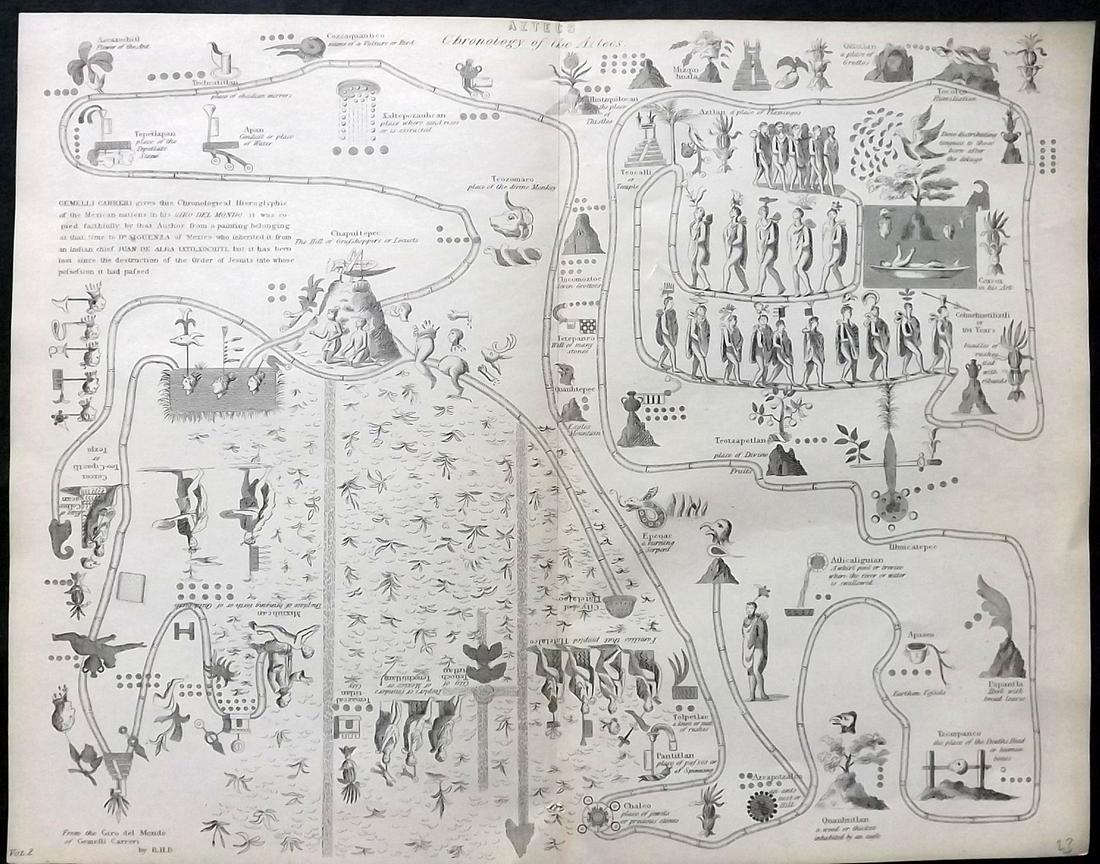 AZTECS
Chronology of the Aztecs.
Flower of the Ant
Cozcaquauhco
name of a Vulture or Bird
Techcatitlan
place of obsidian mirrors
Tepetlapan
place of the
Tepetlate
Stone
Apan
Conduit or place
of Water
Xaltepozauhcan
place where sand rises
or is extracted
Teozomaco
place of the divine Monkey
GEMELLI CARRERI gives this Chronological Hieroglyphic
of the Mexican nations in his GIRO DEL MONDO. it was co-
pied faithfully by that Author from a painting belonging
at that time to Dr. SIGUENZA of Mexico who inherited it from
an indian chief JUAN DE ALBA IXTLXOCHITL but it has been
lost since the destruction of the Order of Jesuits into whose
possession it had passed
Chapultepec
The Hill of Grasshoppers or Locusts
the place
of
Thistles
Mizquia
huala
a place of
Grottoes
Humiliation
Aztlan a place of Flamingoes
Teocalli
or
Temple
Dove distributing
tongues to those
born after
the deluge
Coxcox
in his Ark
or
104 Years
bundles of
rushes
tied
with
ribands
Chicomoztoc
Seven Grottoes
Tetepanco
Wall of many
stones
Quauhtepec
Eagles
Mountain
Teotzapotlan
place of Divine
Fruits
Ilhuicatepec
Epcoac
a burning
Serpent
Atlicalaguian
A whirl pool or treeuse
where the river or water
is swallowed
Apazco
Earthern Vessels
Papantla
Herb with
broad leaves
Tzompanco
the place of the Deaths Head
or human
bones
Quauhtitlan
a wood or thicket
inhabited by an eagle
Azcapotzalco
an ants
nest or
Hill
Chalco
place of jewels
or precious stones
Pantitlan
place of passes or
of Spinning
Tolpetlac
a knot or mat
of rushes
Families that peopled Tlatelalco
City of
Peoplers or founders
of Mexico or Tenochtitlan
City of
The place of bringing forth or of Child birth
Coxcox
or
Tezpi
From the Giro del Mondo
of Gemelli Carreri
by R.H.D.
Vol. 2
23